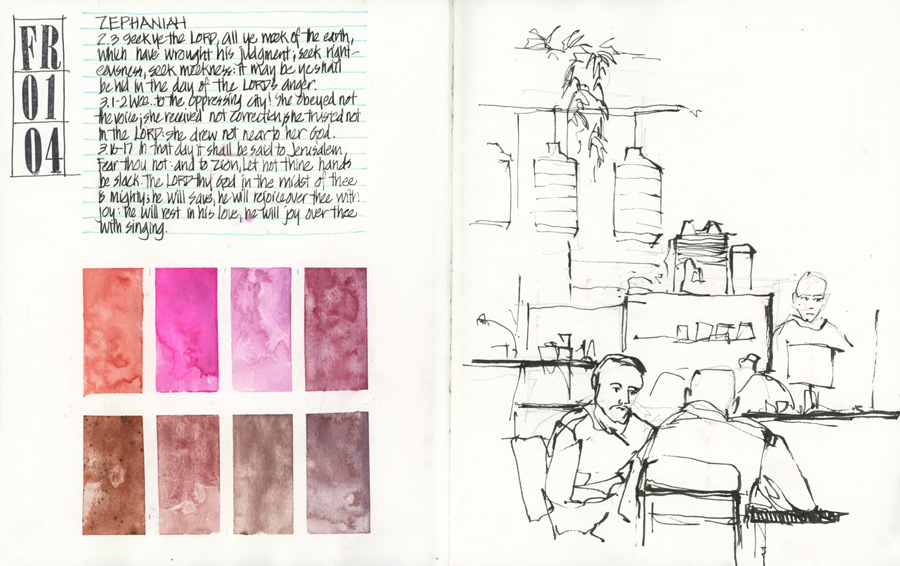 FR
01
04
ZEPHANIAH
2.3 Seek ye the LORD, all ye meek of the earth,
which have wrought his judgment; seek right-
eousness, seek meekness: it may be ye shall
be hid in the day of the LORD'S anger.
3.1-2 Woe to the oppressing city! She obeyed not
the voice; she received not correction, she trusted not
in the LORD: she drew not near to her God.
3.16-17 In that day it shall be said to Jerusalem,
Fear thou not: and to Zion, Let not thine hands
be slack. The LORD thy God in the midst of thee
is mighty; he will save, he will rejoice over thee with
joy: he will rest in his love, he will joy over thee
with singing.